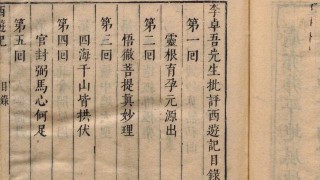 李卓吾先生批評西遊記目錄
第一回
靈根育孕元源出
第二回
悟徹菩提真妙理
第三回
四海千山皆拱伏
第四回
官封弼馬心何足
第五回
西遊記 目錄